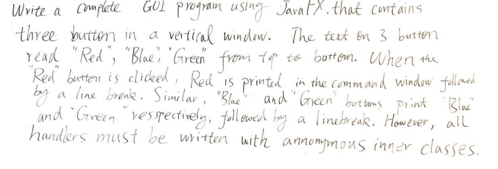 Write a complete GUI program using JavaFX. that contains
three button in a vertical window. The text on 3 button
read "Red", "Blue", "Green" from top to bottom. When the
"Red" button is clicked, Red is printed in the command window followed
by a line break. Similar, "Blue" and "Green" buttons print "Blue"
and "Green" resspectively, followed by a linebreak. However, all
handlers must be written with annonymous inner classes.